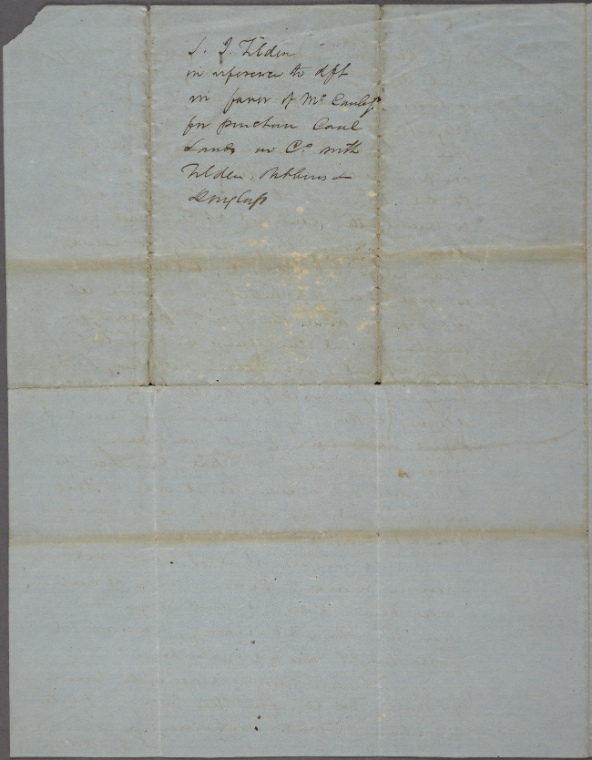 S. J. Tilden
in reference to dft
in favor of Mc
for purchase Coal
Lands in Co. with
Tilden, &